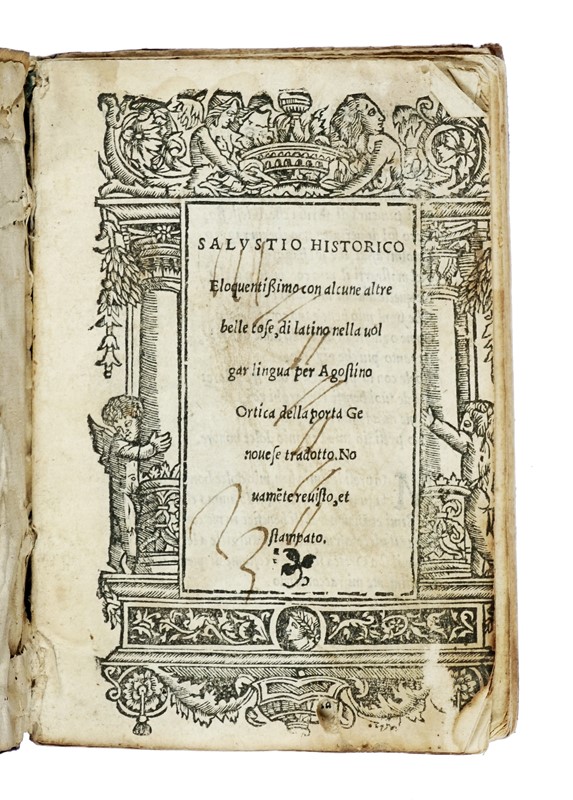 SALVSTIO HISTORICO
Eloquentißimo con alcune altre
belle coſe, di latino nella uol
gar lingua per Agoſtino
Ortica della porta Ge
noueſe tradotto. No
uamẽte reuiſto, et
ſtampato.